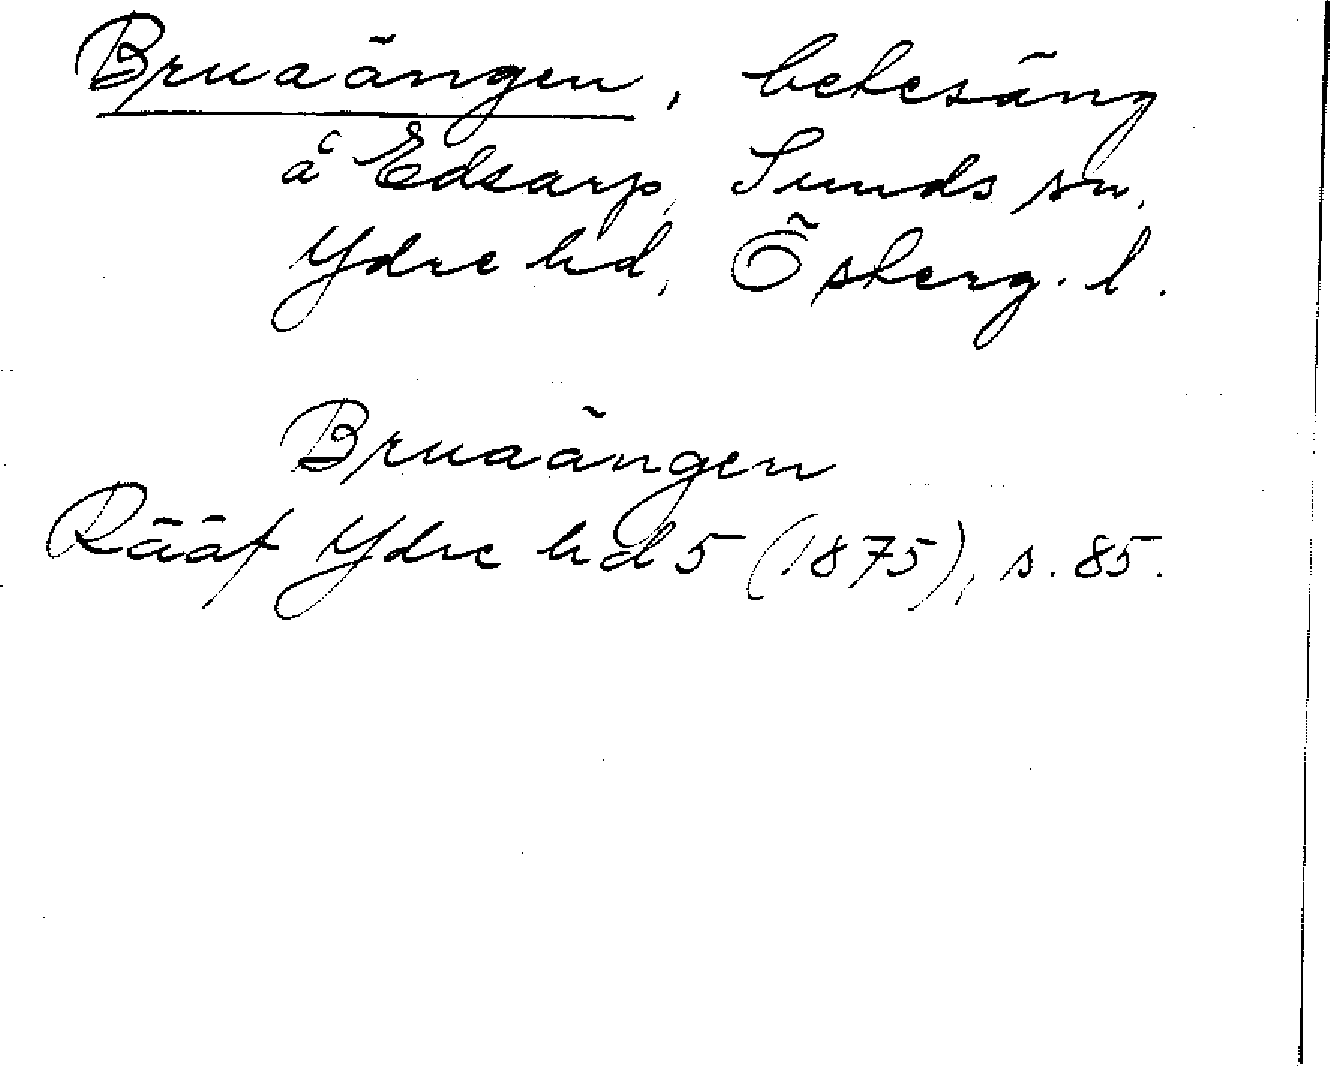 Bruaängen, betesäng
å Edsarp, Sunds sn,
Ydre hd, Österg. l.
Bruaängen
Rääf Ydre hd 5 (1875), s. 85.